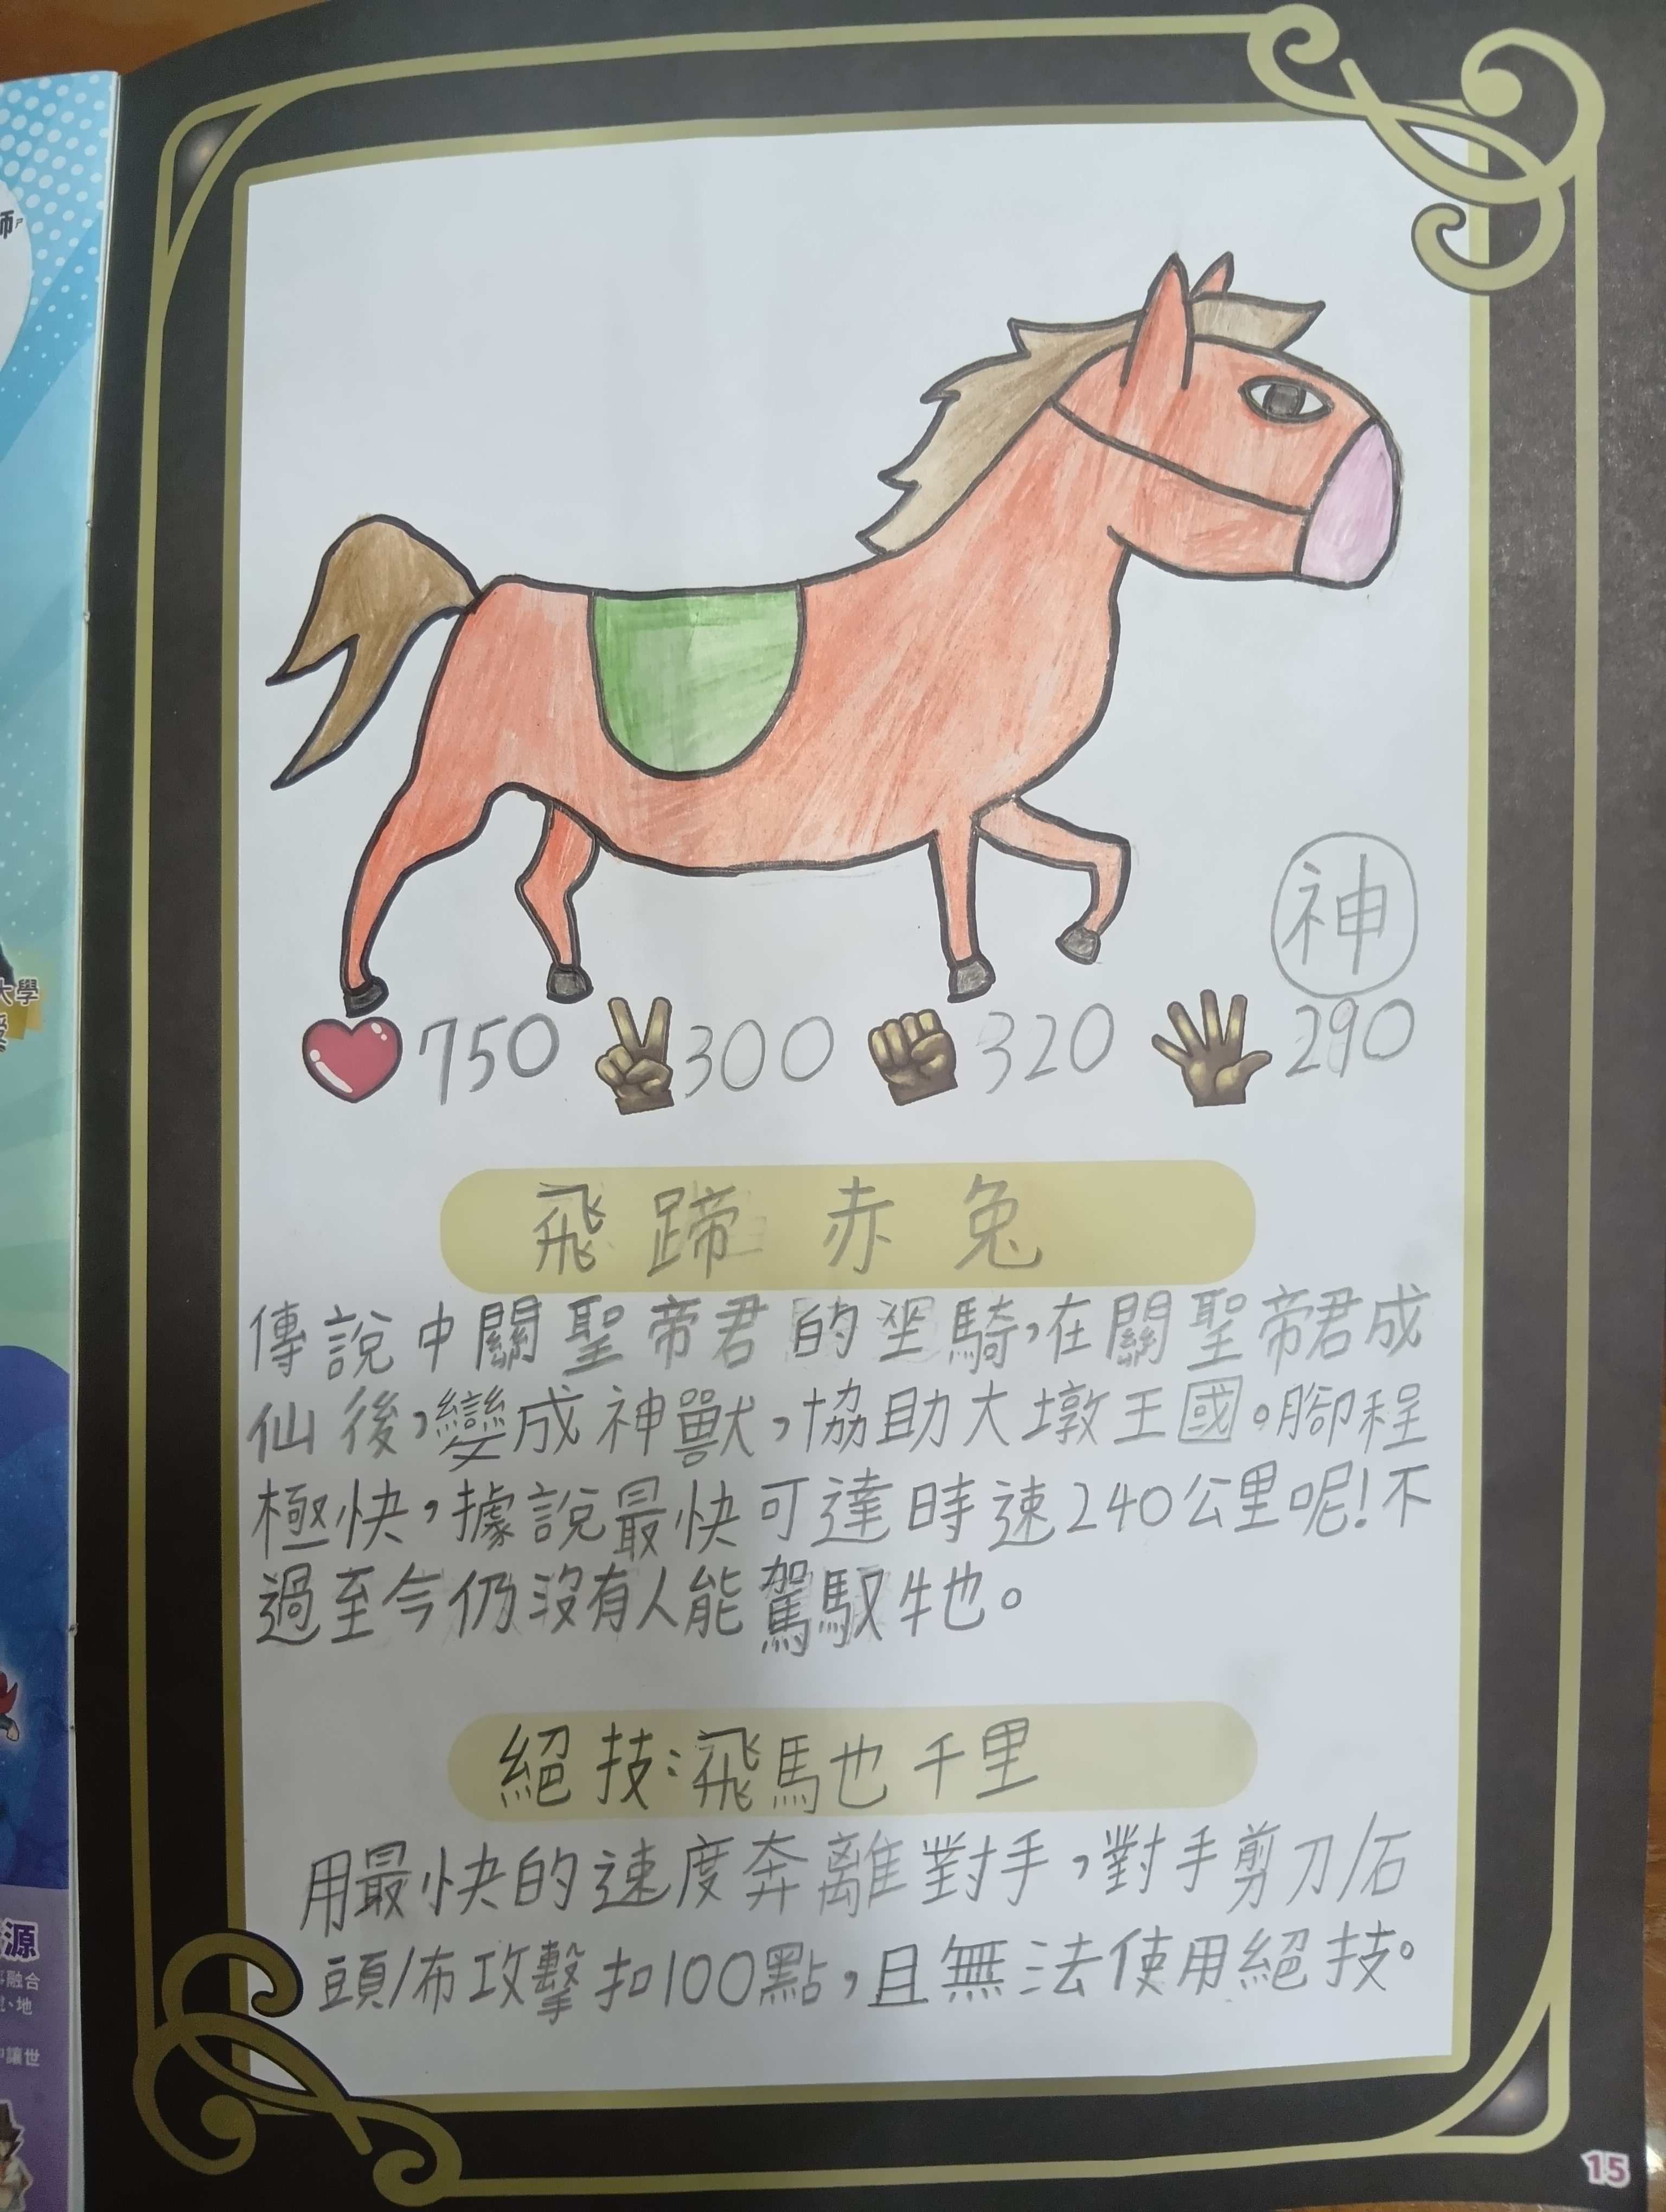 師ㄕ
大學
源
融合
、地
讓世
神
750 300 320 290
飛蹄赤兔
傳說中關聖帝君的坐騎,在關聖帝君成
仙後,變成神獸,協助大墩王國。腳程
極快,據說最快可達時速240公里呢!不
過至今仍沒有人能駕馭牠。
絕技:飛馬也千里
用最快的速度奔離對手,對手剪刀/石
頭/布攻擊扣100點,且無法使用絕技。
15